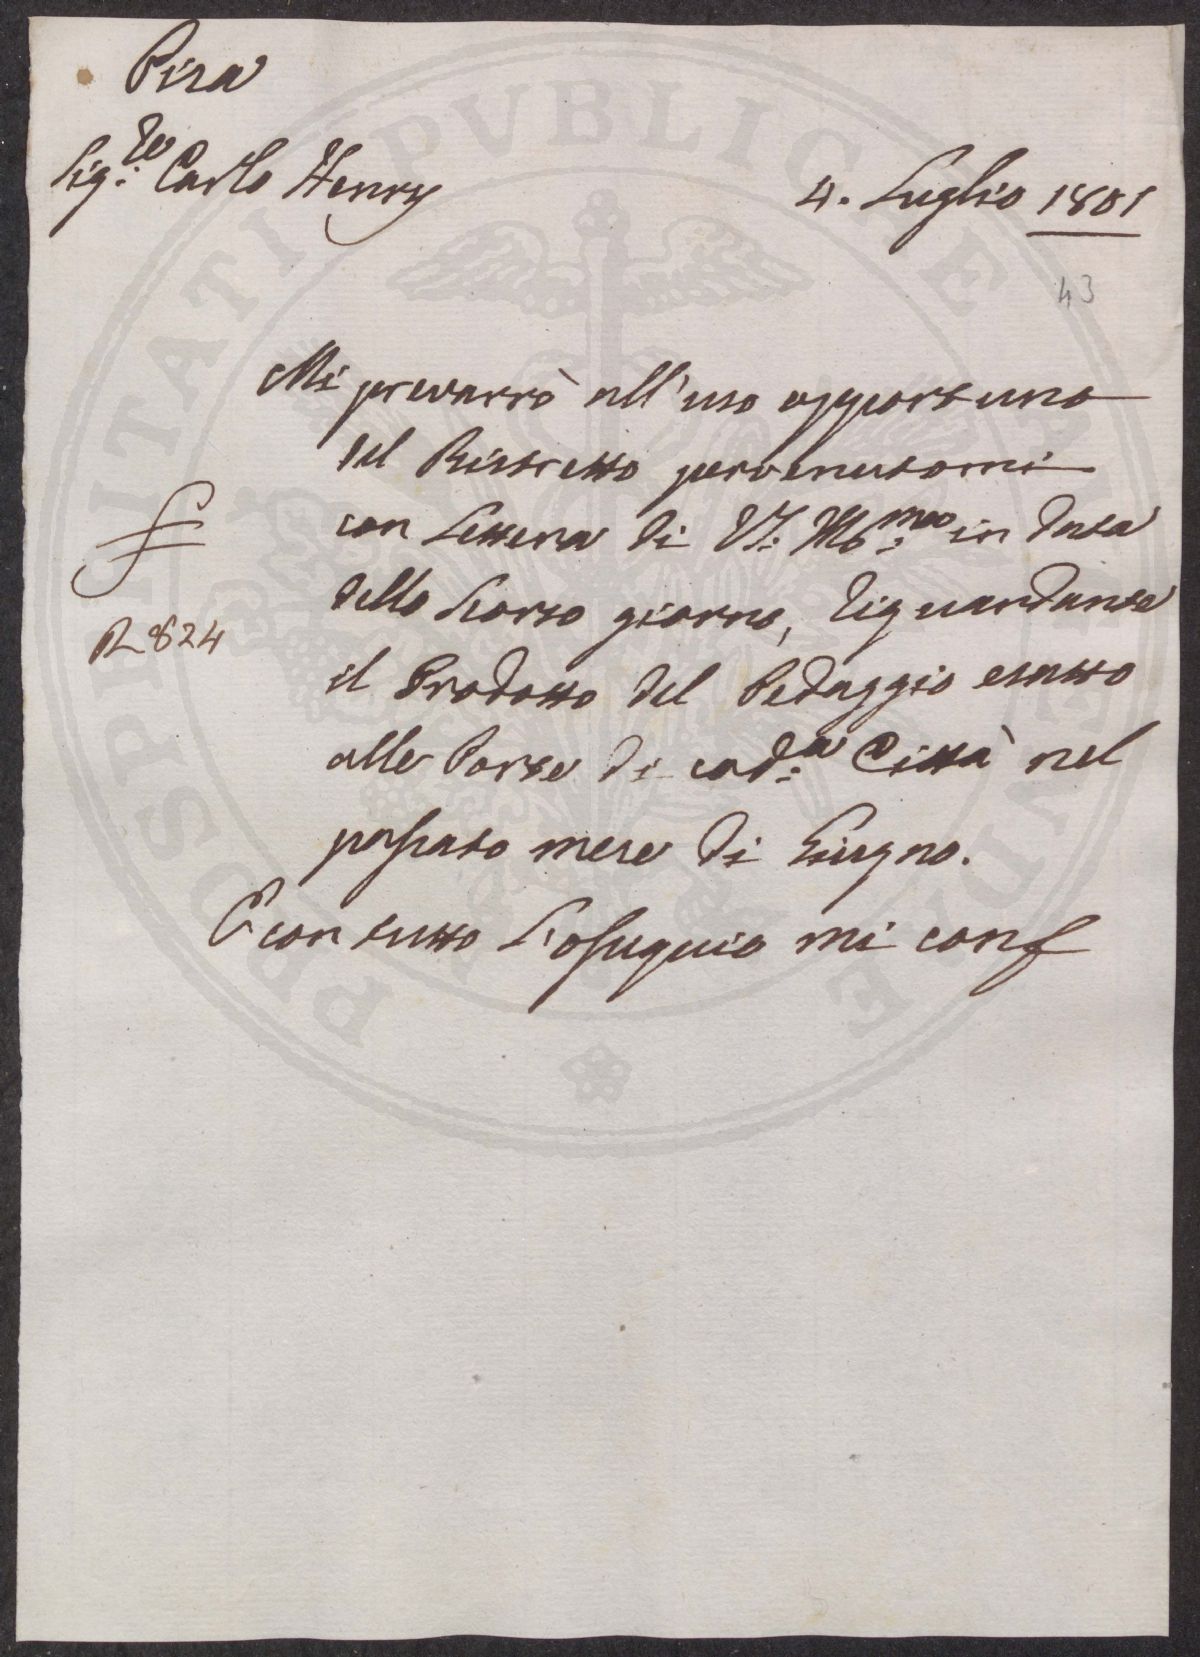 Pisa
Sig.re Carlo Henry
4. Luglio 1801
43
Mi prevarrò all'uso opportuno
del Ristretto pervenutomi
con Lettera di VS. Ill.ma in data
dello scorso giorno, riguardante
il Prodotto del Pedaggio esatto
alle Porte di cod.a Città nel
passato mese di Giugno.
E con tutto l'ossequio mi conf
R 824
PROSPERITATI PUBLICAE